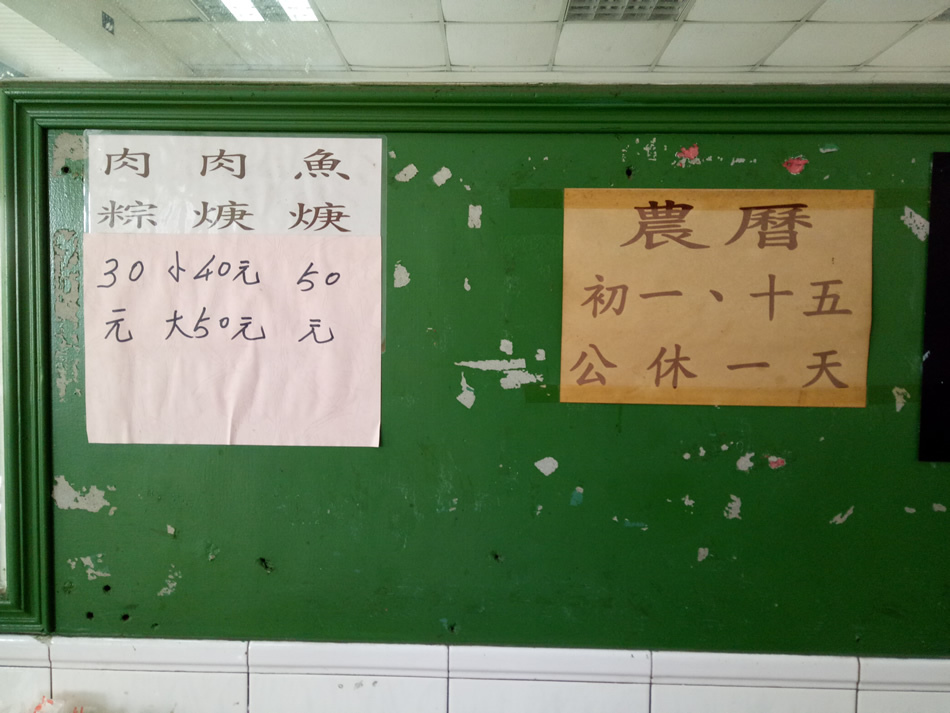 肉 肉 魚
粽 焿 焿
30 小40元 50
元 大50元 元
農曆
初一、十五
公休一天